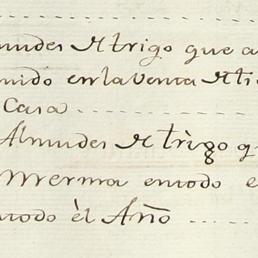 mudes de trigo que a
nido en la Venta de tri
Casa
Almudes de trigo q
Merma en todo e
ntodo èl Año